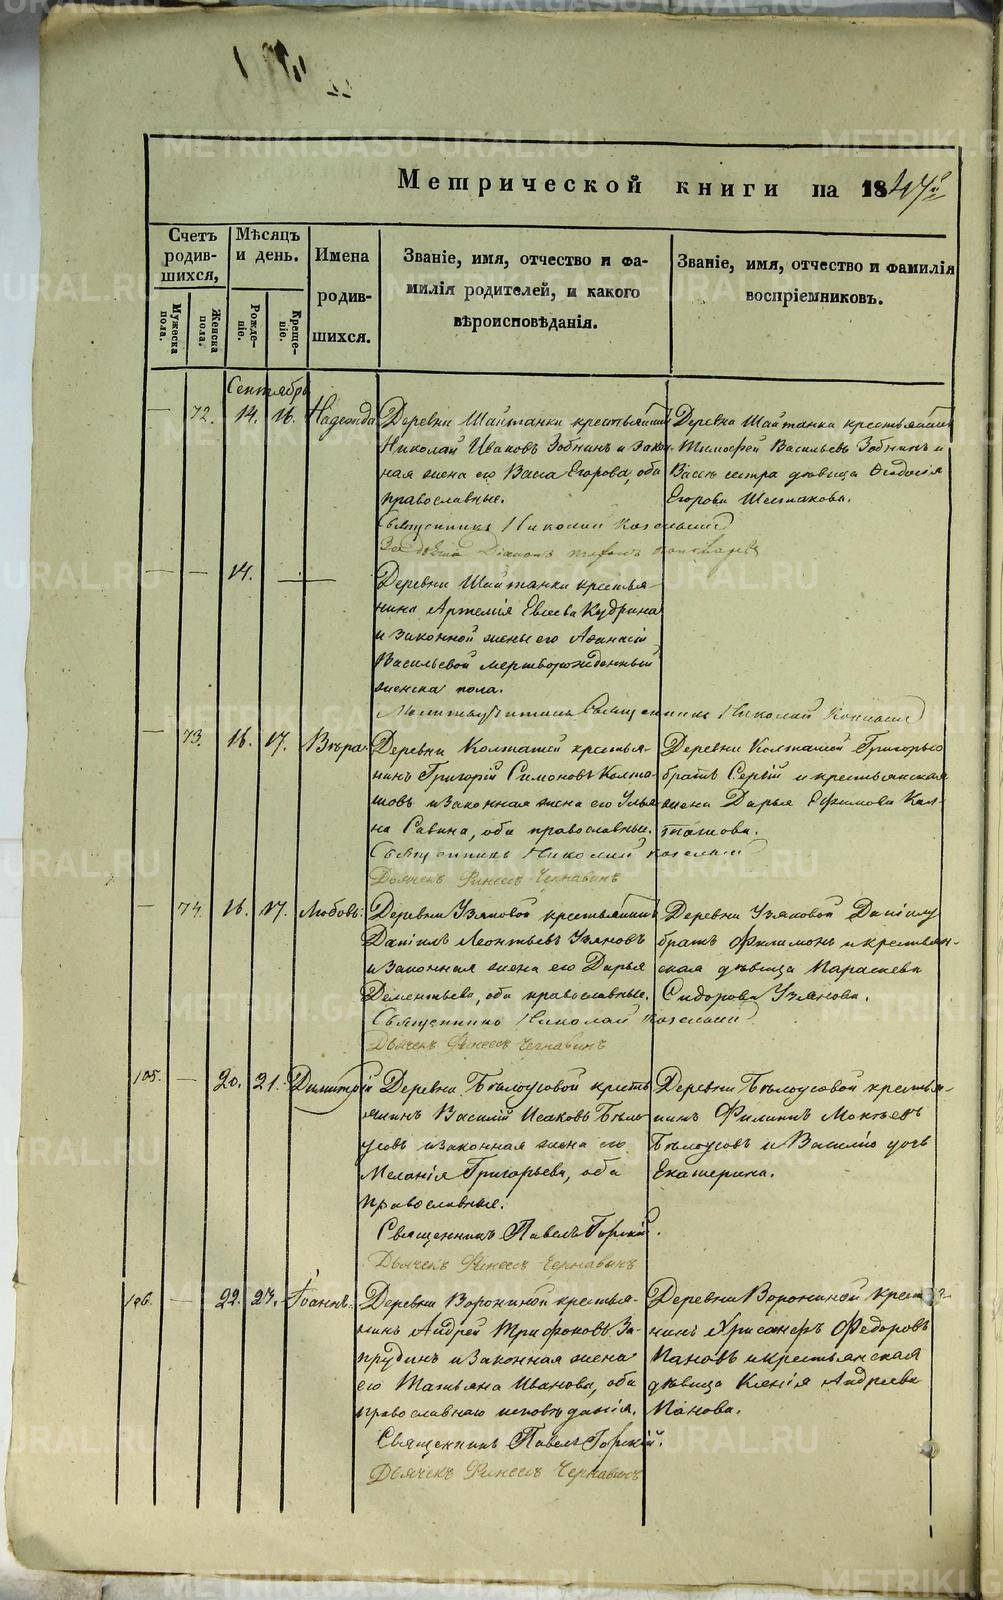 Метрической книги на 1847й
Счетъ родив-шихся,
Мужеска пола.
Женска пола.
Мѣсяцъ и день.
Рожде-ніе.
Креще-ніе.
Имена родив-шихся.
Званіе, имя, отчество и фа-
милія родителей, и какого
вѣроисповѣданія.
Званіе, имя, отчество и фамилія
воспріемниковъ.
Сентябрь
— 72. 14. 16. Надежда
Деревни Шайтанки крестьянинъ
Николай Ивановъ Зобнинъ и закон-
ная жена его Васса Егорова, оба
православные.
Священникъ Николай
Деревни Шайтанки крестьянинъ
Тимофей Васильевъ Зобнинъ и
Вассы сестра дѣвица Ѳеодосія
Егорова Шестакова.
— — 14. —
Деревни Шайтанки крестья-
нина Артемія Евсеева Кудрина
и законной жены его Аѳанасіи
Васильевой мертворожденный
женска пола.
Священникъ Николай
— 73. 16. 17. Вѣра
Деревни Колташей крестья-
нинъ Григорій Симоновъ Колта-
шовъ и законная жена его Улья-
на Савина, оба православные.
Священникъ Николай
Дьячекъ Финеесъ Чернавинъ
Деревни Колташей Григорью
братъ Сергій и крестьянская
жена Дарья Ефимова Кол-
ташова.
— 74. 16. 17. Любовь:
Деревни Узяновой крестьянинъ
Даніилъ Леонтьевъ Узяновъ
и законная жена его Дарья
Дементьева, оба православные.
Священникъ Николай
Дьячекъ Финеесъ Чернавинъ
Деревни Узяновой Даніилу
братъ Филимонъ и крестьян-
ская дѣвица Параскева
Сидорова Узянова.
105. — 20. 21. Димитрій
Деревни Бѣлоусовой кресть-
янинъ Василій Исаковъ Бѣло-
усовъ и законная жена его
Меланія Григорьева, оба
православные.
Священникъ Павелъ Горскій.
Дьячекъ Финеесъ Чернавинъ
Деревни Бѣлоусовой крестья-
нинъ Филиппъ Мокѣевъ
Бѣлоусовъ и Василію дочь
Екатерина.
106. — 22. 23. Іоаннъ.
Деревни Ворониной крестья-
нинъ Андрей Трифоновъ За-
прудинъ и законная жена
его Татьяна Иванова, оба
православнаго исповѣданія.
Священникъ Павелъ Горскій.
Дьячекъ Финеесъ Чернавинъ
Деревни Ворониной кресть
нинъ Хрисанфъ Федоровъ
Пановъ и крестьянская
дѣвица Ксенія Андреева
Панова.
METRIKI.GASO-URAL.RU